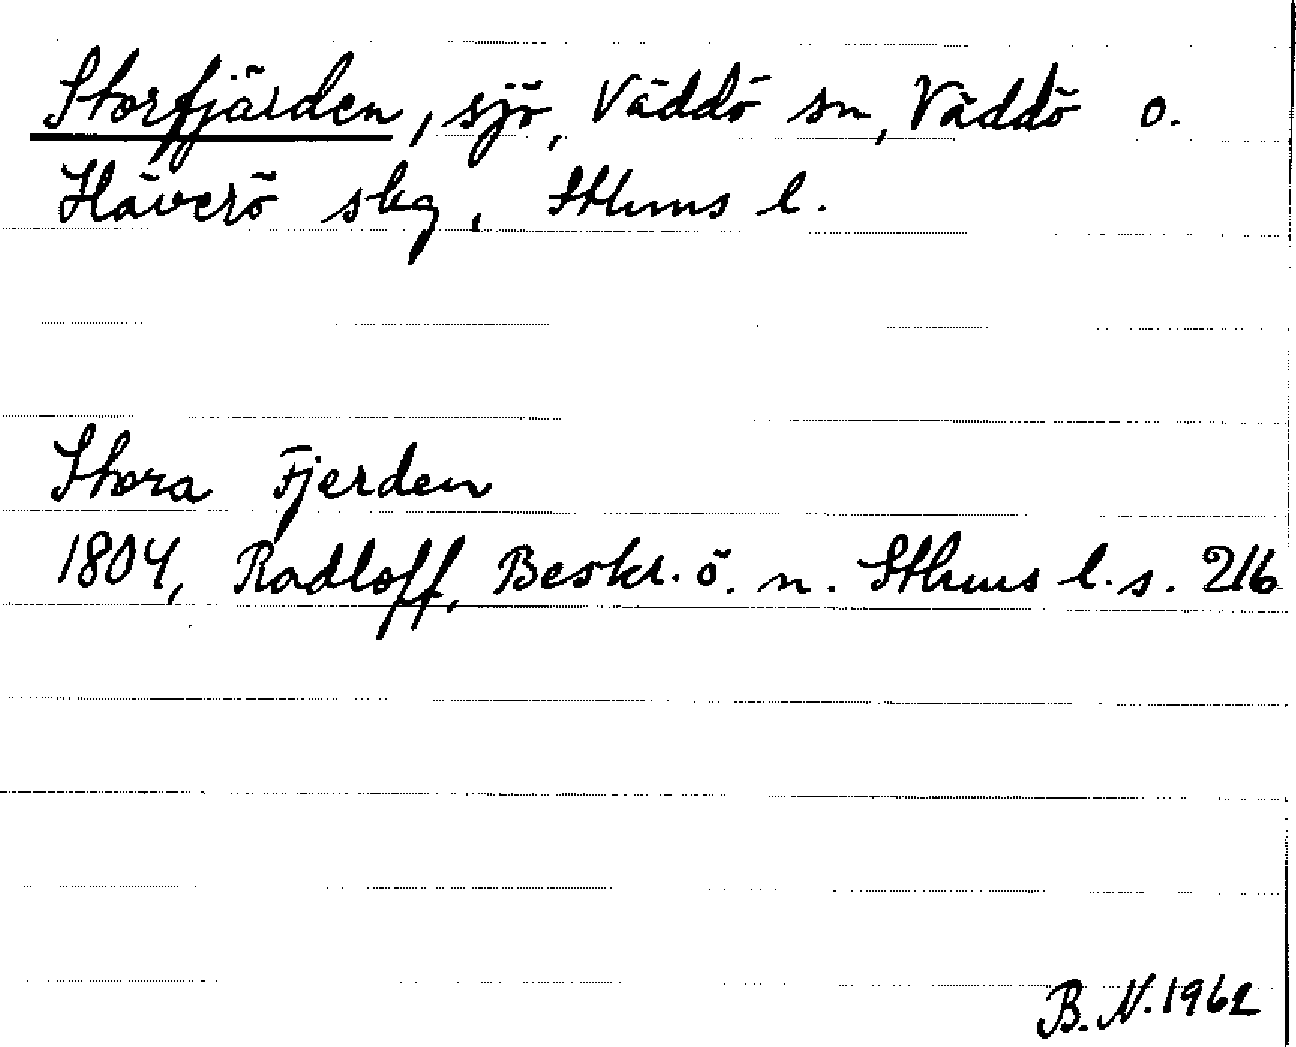 Storfjärden, sjö, Väddö sn, Väddö o.
Häverö skg, Sthms l.
Stora Fjerden
1804, Radloff, Beskr. ö. n. Sthms l. s. 216
B. N. 1962